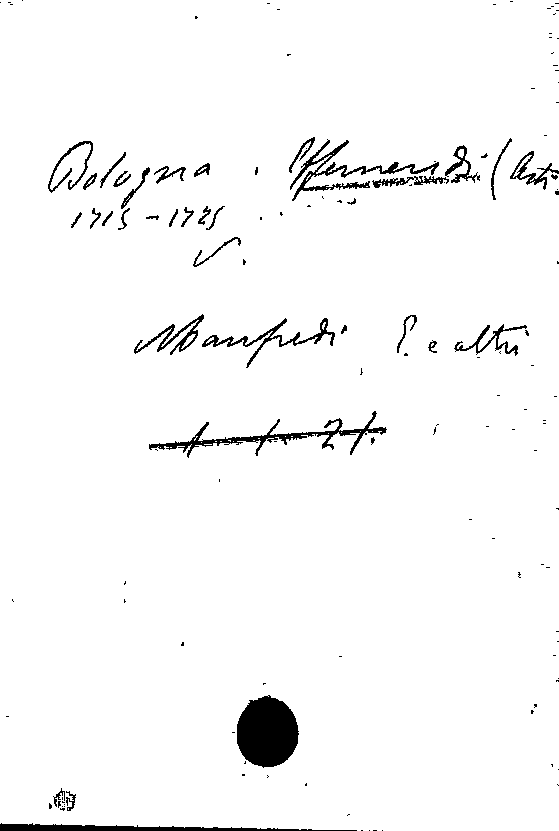 Bologna . Effemeridi (Astr.
1715 - 1725
V.
Manfredi E. e altri